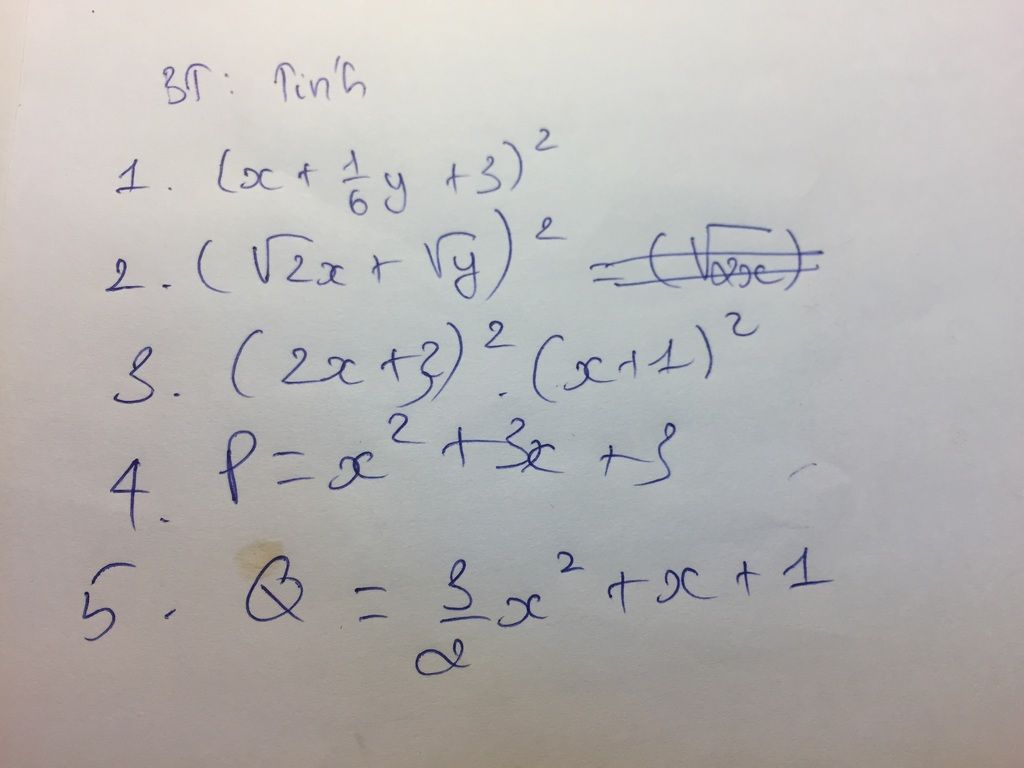 BT: Tính
1. (x + 1/6 y + 3)²
2. (√2x + √y)² = (√2x)
3. (2x + 3)² . (x + 1)²
4. P = x² + 3x + 3
5. Q = 3/2 x² + x + 1